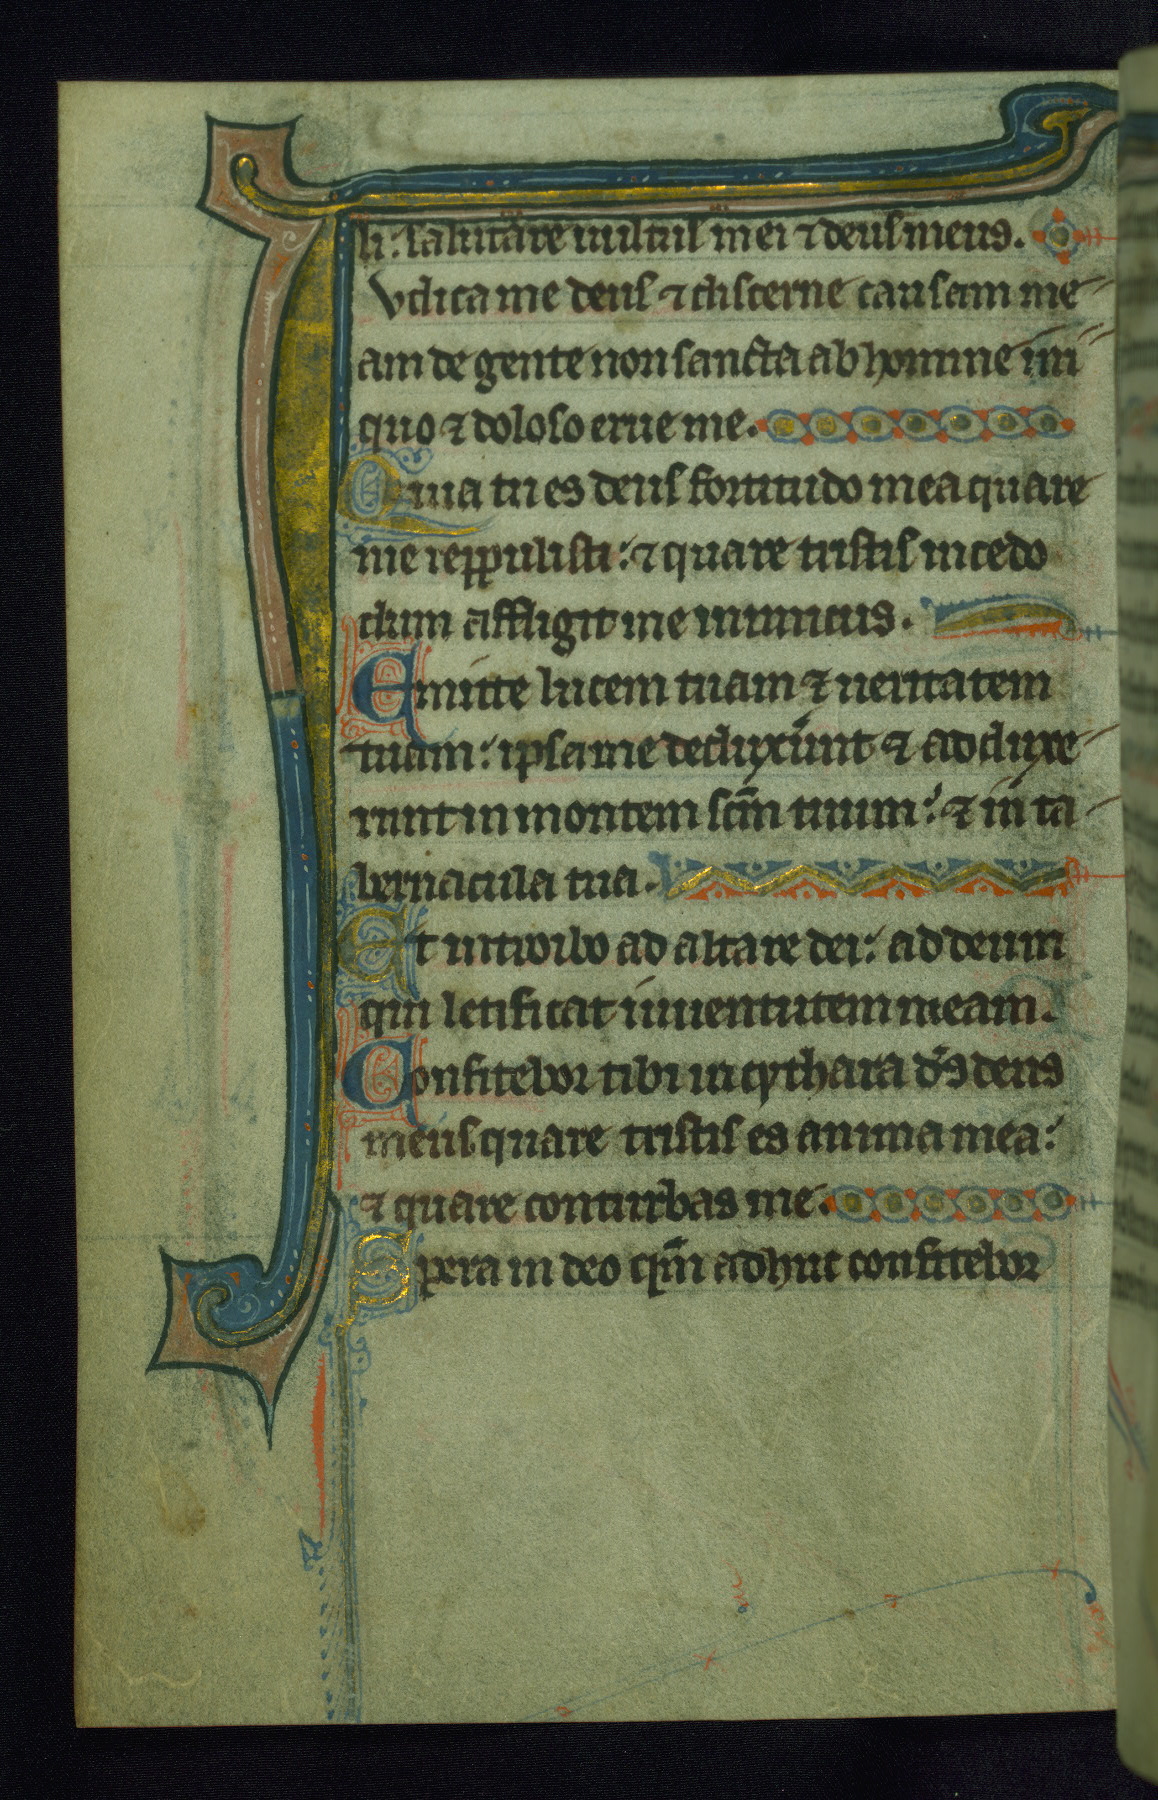 li: salutare uultus mei ⁊ deus meus.
Iudica me deus ⁊ discerne causam me
am de gente non sancta ab homine ini
quo ⁊ doloso erue me.
Quia tu es deus fortitudo mea quare
me reppulisti: ⁊ quare tristis incedo
dum affligit me inimicus.
Emitte lucem tuam ⁊ ueritatem
tuam: ipsa me deduxerunt ⁊ adduxe
runt in montem scm̄ tuum: ⁊ in ta
bernacula tua.
Et introibo ad altare dei: ad deum
qui letificat iuuentutem meam.
Confitebor tibi in cythara ds̄ deus
meus quare tristis es anima mea:
⁊ quare conturbas me.
Spera in deo qm̄ adhuc confitebor